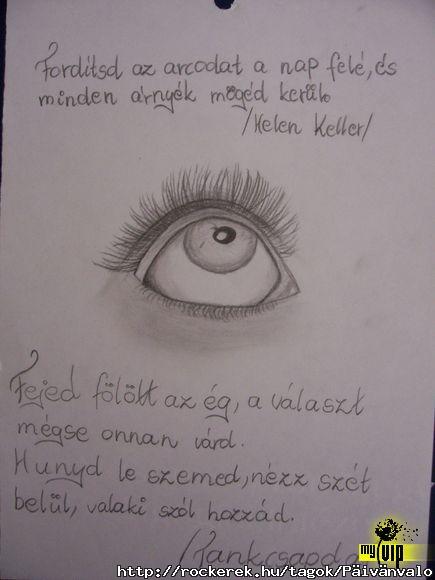 Fordítsd az arcodat a nap felé, és
minden árnyék mögéd kerül.
/Helen Keller/
Fejed fölött az ég, a választ
mégse onnan várd.
Hunyd le szemed, nézz szét
belül, valaki szól hozzád.
/Tankcsapda
my VIP
http://rockerek.hu/tagok/Päivänvalo